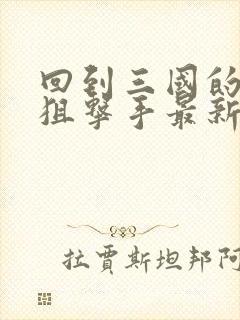 回到三國的
狙擊手最新
拉賈斯坦邦阿